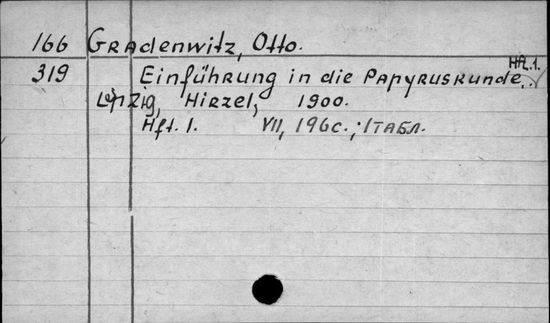 166 Gradenwitz, Otto.
319 Einführung in die Papyruskunde, Hft. 1.
Leipzig, Hirzel, 1900.
Hft. 1. VII, 196 с.; 1 табл.